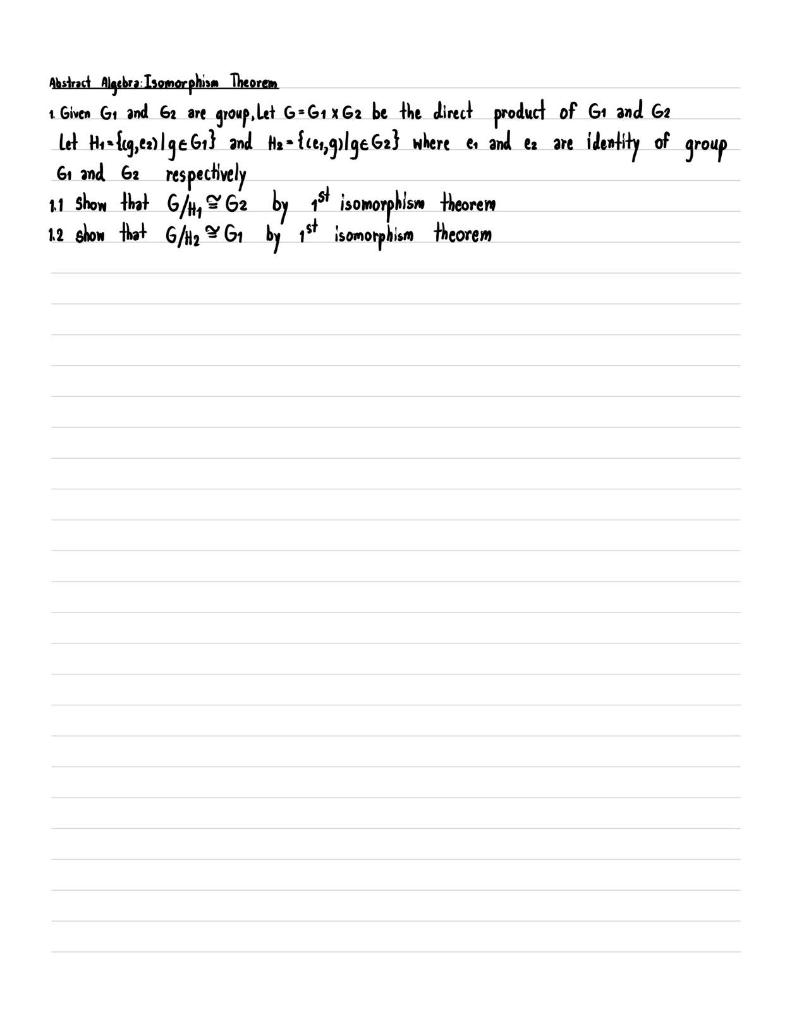 Abstract Algebra: Isomorphism Theorem
1. Given G1 and G2 are group, Let G=G1 x G2 be the direct product of G1 and G2
Let H1={(g,e2)|g∈G1} and H2={(e1,g)|g∈G2} where e1 and e2 are identity of group
G1 and G2 respectively
1.1 Show that G/H1 ≅ G2 by 1st isomorphism theorem
1.2 show that G/H2 ≅ G1 by 1st isomorphism theorem